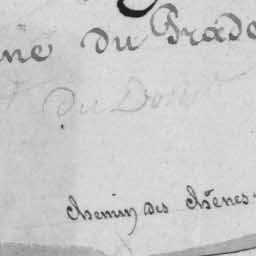 ne du Prado
du
Chemin des Chênes